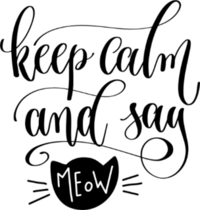 keep calm
and say
MEOW